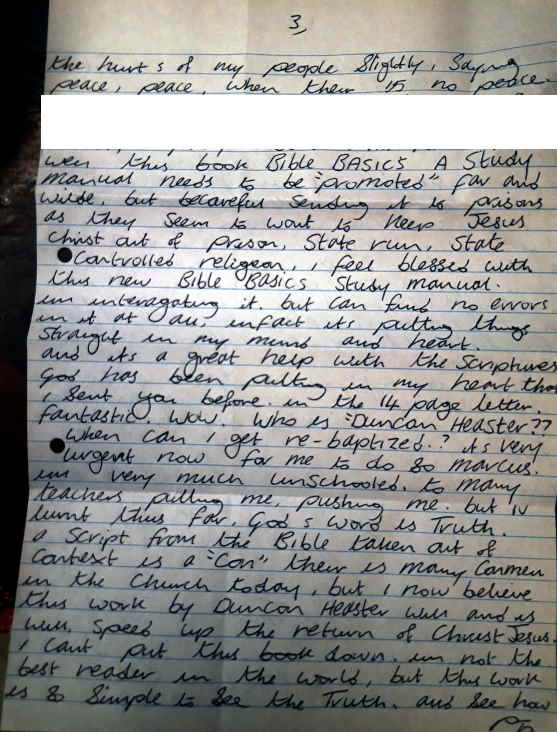 3,
the hurt s of my people Slightly, Saying
peace, peace, when their is no peace.
well this book Bible BASICS A Study
manual needs to be "promoted" far and
wilde, but becareful Sending it to prisons
as they seem to want to keep Jesus
Christ out of prison, State run, State
Controlled religeon, i feel blessed with
this new Bible Basics Study manual.
im interagating it. but can find no errors
in it at all, infact its putting things
Straight in my mind and heart.
and its a great help with the Scriptures
God has been putting in my heart that
i sent you before in the 14 page letter.
fantastic. WOW. Who is "Duncan Heaster??
When can i get re-baptized.? its very
urgent now for me to do so marcus.
im very much unschooled. to many
teachers pulling me, pushing me. but iv
lurnt this far, God s word is Truth.
a Script from the Bible taken out of
Context is a "Con" their is many Conmen
in the Church today, but i now believe
this work by Duncan Heaster will and is
will, Speed up the return of Christ Jesus.
i cant put this book down. im not the
best reader in the world, but this work
is so Simple to See the Truth. and See how